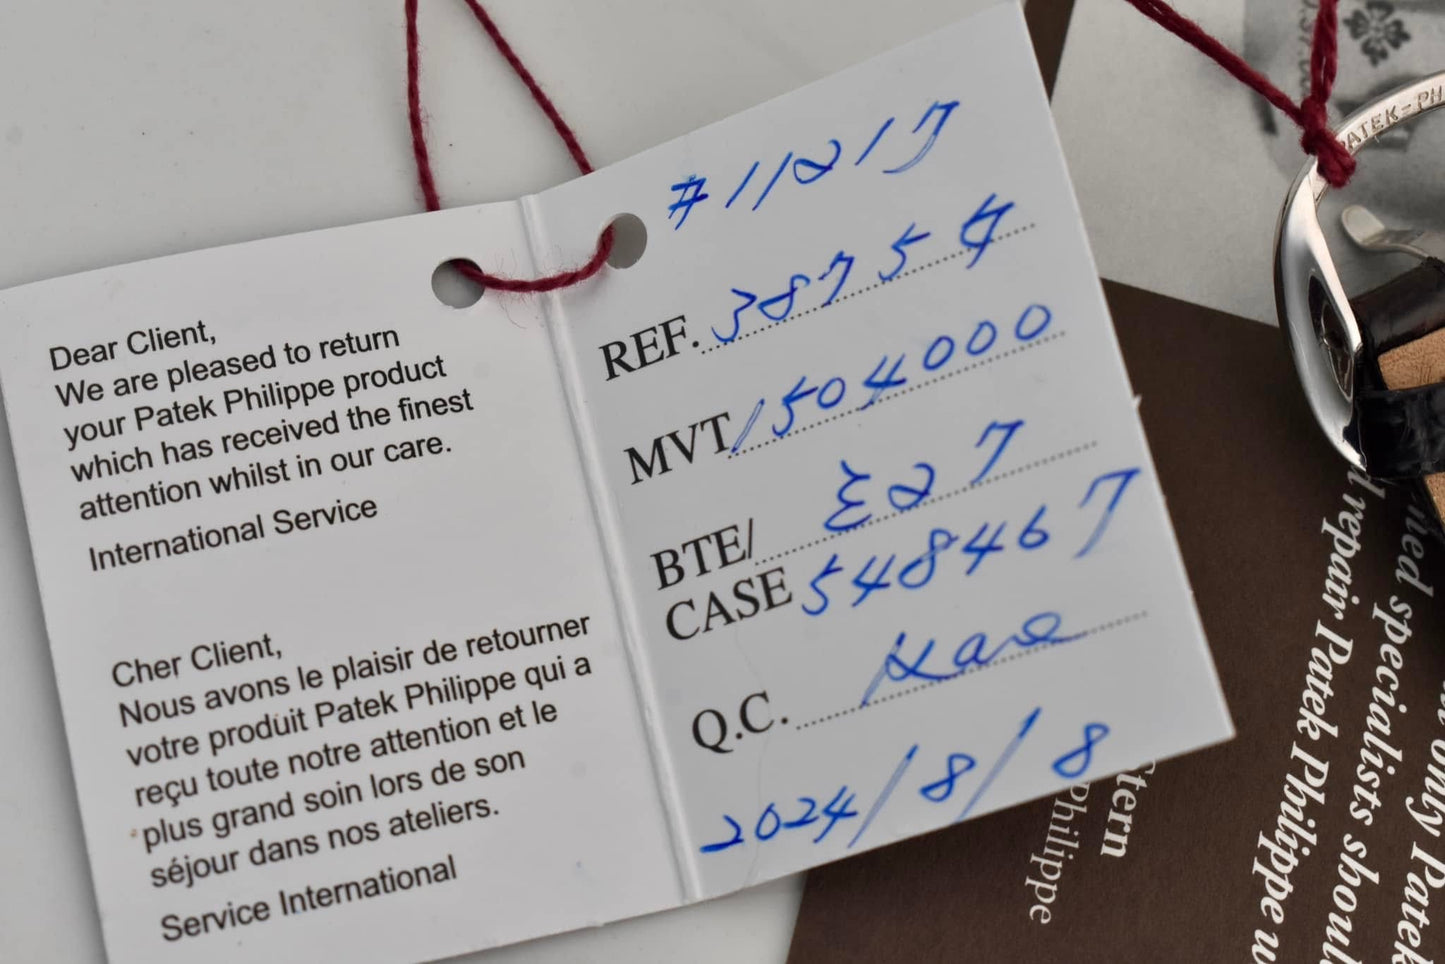 Dear Client,
We are pleased to return
your Patek Philippe product
which has received the finest
attention whilst in our care.
International Service
Cher Client,
Nous avons le plaisir de retourner
votre produit Patek Philippe qui a
reçu toute notre attention et le
plus grand soin lors de son
séjour dans nos ateliers.
Service International
#11217
REF. 3875
MVT 1504000
BTE/
CASE 548467
Q.C.
2024/8/8
PATEK-PH
specialists shou
repair Patek Philippe
only Patek
Philippe